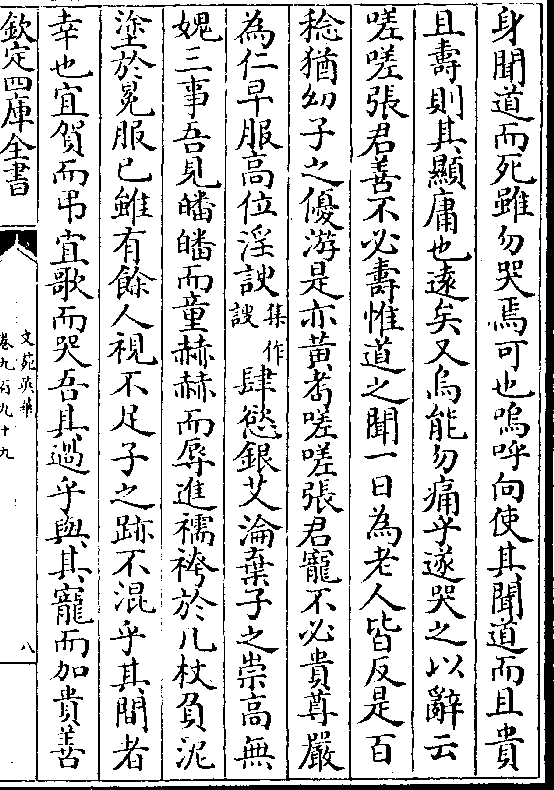 身聞道而死雖勿哭焉可也嗚呼向使其聞道而且貴
且壽則其顯庸也遠矣又烏能勿痛乎遂哭之以辭云
嗟嗟張君善不必壽惟道之聞一日為老人皆反是百
稔猶幼子之優游是亦黃耇嗟嗟張君寵不必貴尊嚴
為仁早服高位淫諛集作諛肆慾銀艾淪棄子之崇高無
媿三事吾見皤皤而童赫赫而辱進襦袴於几杖負泥
塗於冕服已雖有餘人視不足子之跡不混乎其間者
幸也宜賀而弔宜歌而哭吾其過乎與其寵而加貴善
欽定四庫全書
文苑英華
卷九百九十九
八